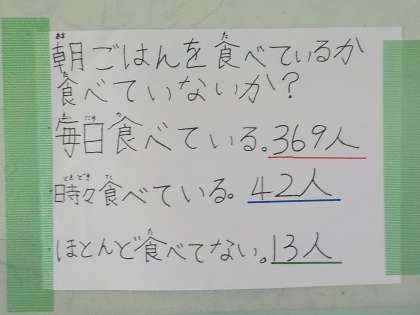 朝ごはんを食べているか
食べていないか？
毎日食べている。369人
時々食べている。42人
ほとんど食べてない。13人